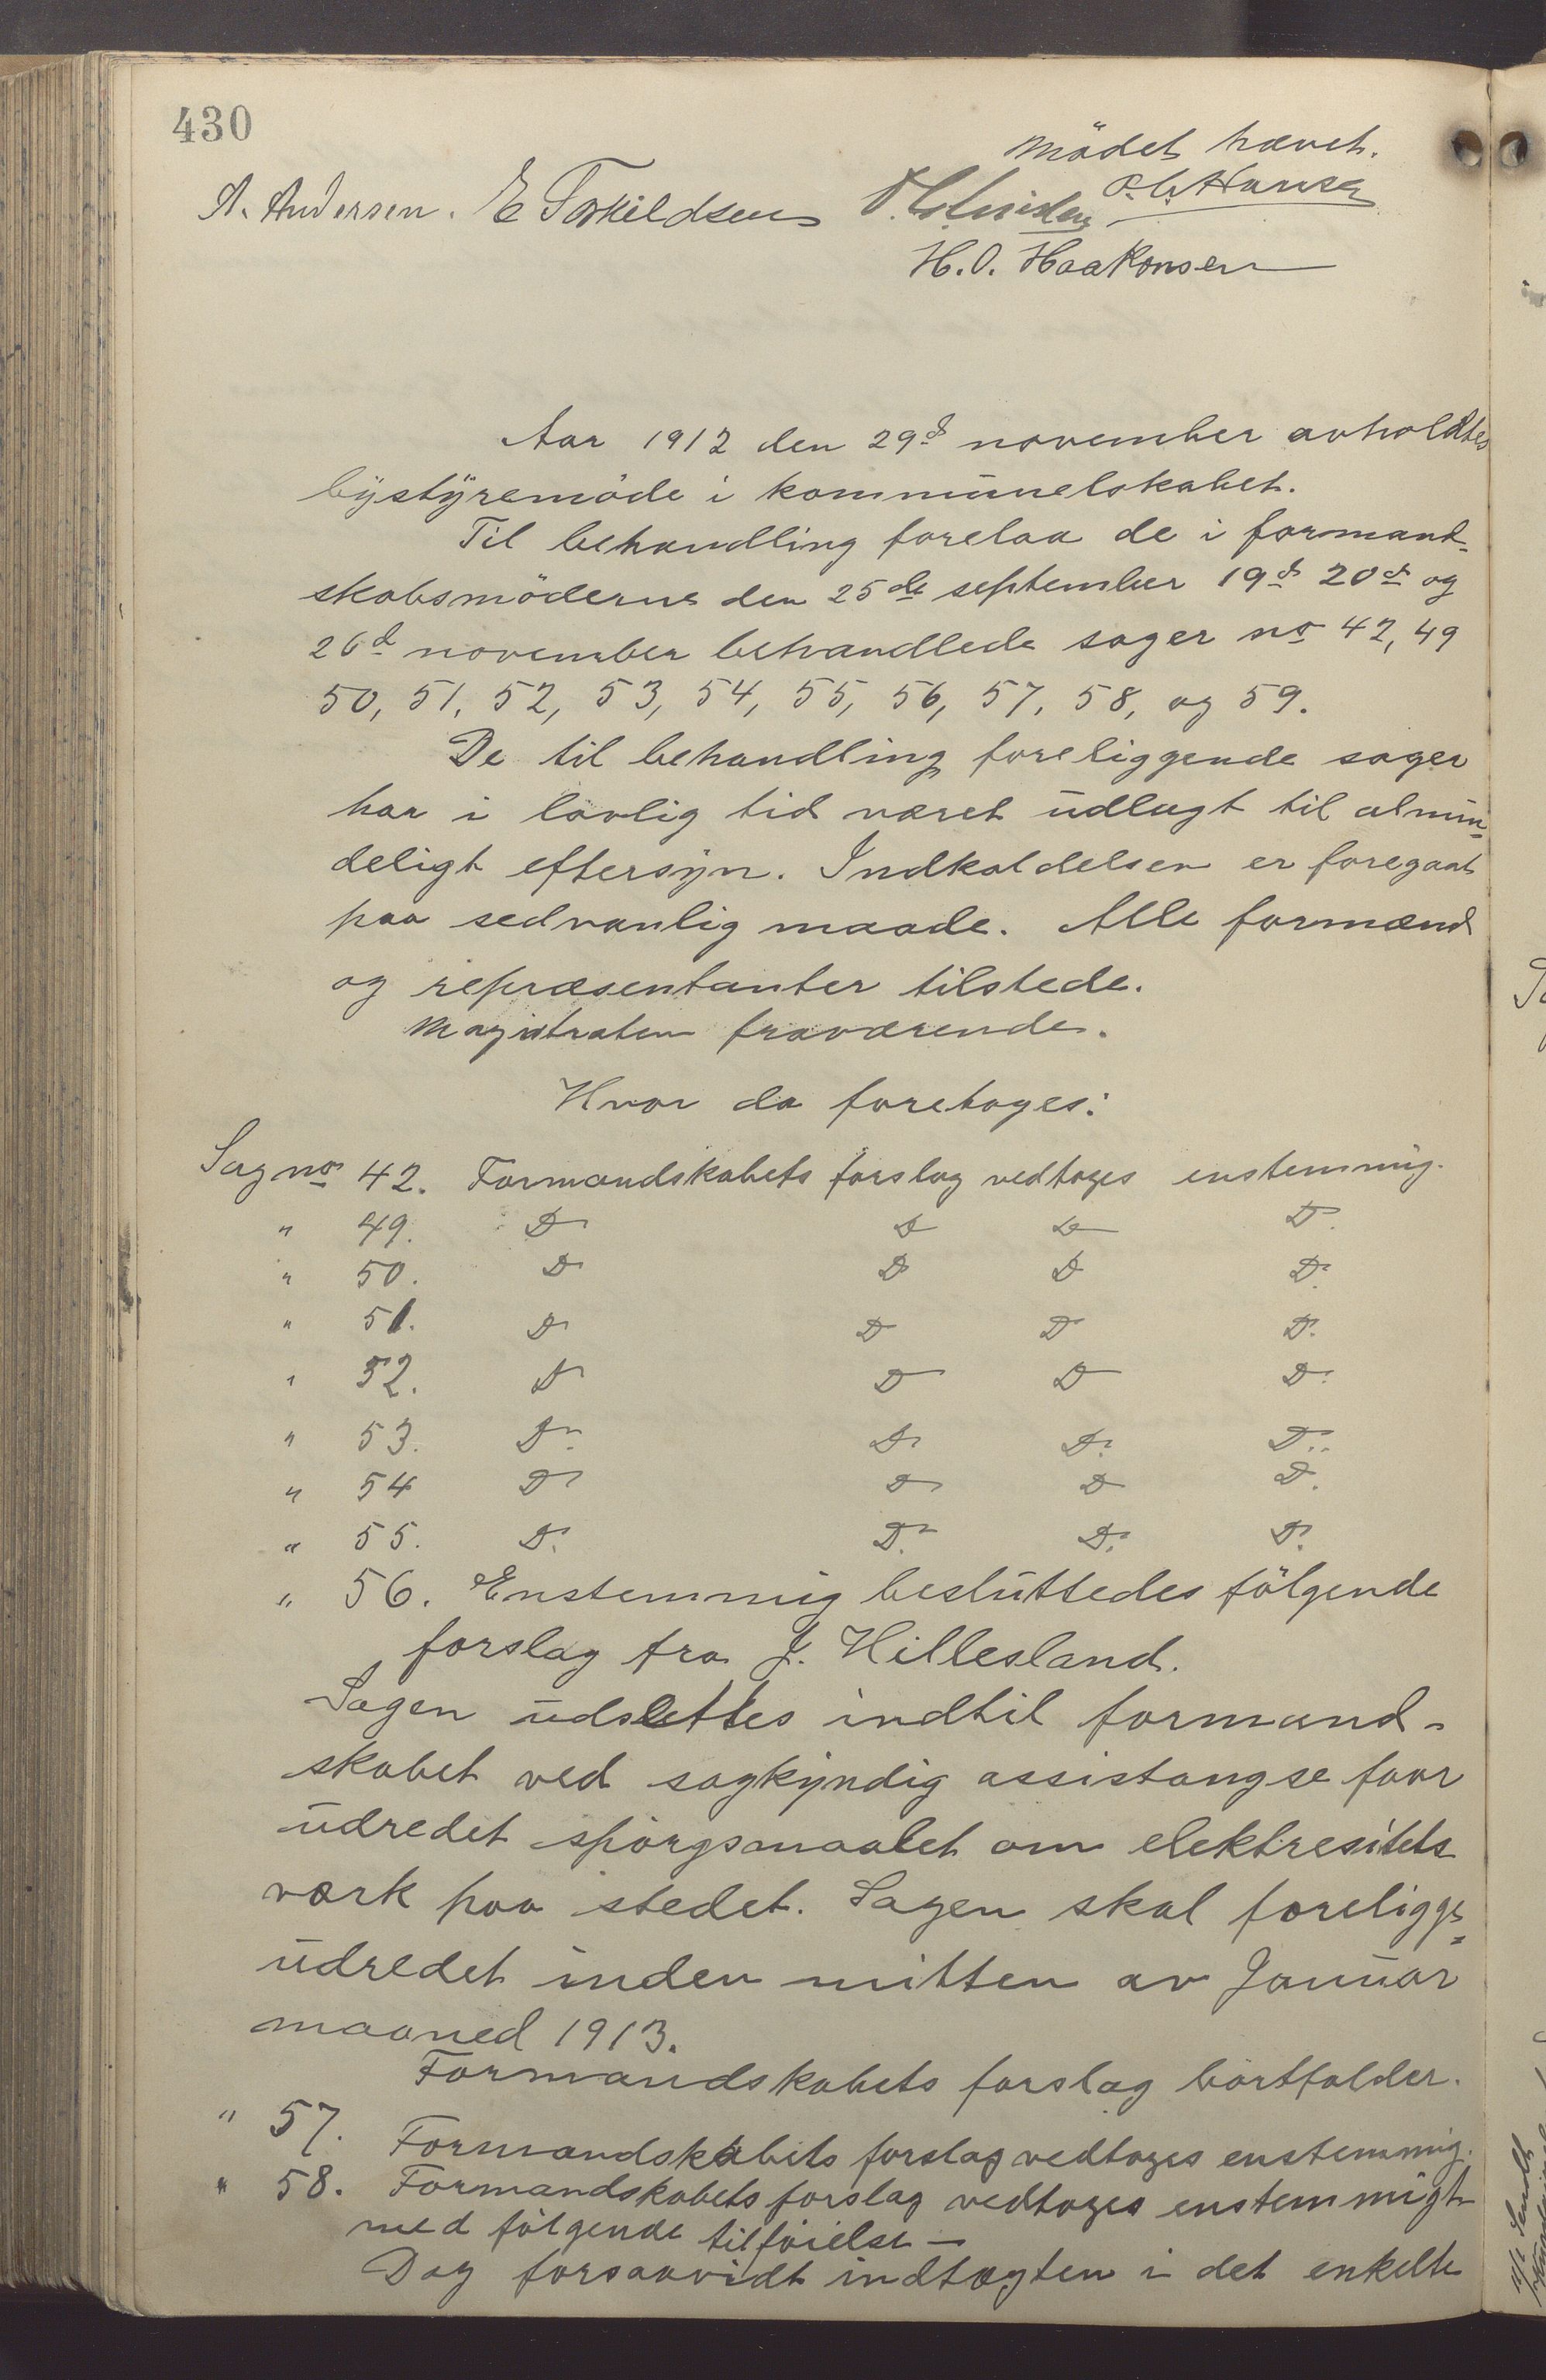 430
Mödet hævet.
A. Andersen. E Torkildsen P. C. Hansen
H. O. Haakonsen
Aar 1912 den 29d november avholdtes
bystyremöde i kommunelokalet.
Til behandling forelaa de i formand-
skabsmöderne den 25de september 19d 20d og
26d november behandlede sager no 42, 49
50, 51, 52, 53, 54, 55, 56, 57, 58, og 59.
De til behandling foreliggende sager
har i lovlig tid været udlagt til almin-
deligt eftersyn. Indkaldelsen er foregaat
paa sedvanlig maade. Alle formænd
og repræsentanter tilstede.
Magistraten fraværende.
Hvor da foretages:
Sag no 42. Formandskabets forslag vedtages enstemmig.
" 49. Do Do Do Do
" 50. Do Do Do Do
" 51. Do Do Do Do
" 52. Do Do Do Do
" 53. Do Do Do Do
" 54 Do Do Do Do
" 55. Do Do Do Do
" 56. Enstemmig besluttedes fölgende
forslag fra J. Hillesland.
Sagen udsættes indtil formand-
skabet ved sagkyndig assistangse faar
udredet spörgsmaalet om elektresitets
værk paa stedet. Sagen skal foreligge
udredet inden mitten av Januar
maaned 1913.
Formandskabets forslag bortfalder.
" 57. Formandskabets forslag vedtages enstemmig.
" 58. Formandskabets forslag vedtages enstemmigt
med fölgende tilföielse —
Dog forsaavidt indtægten i det enkelte